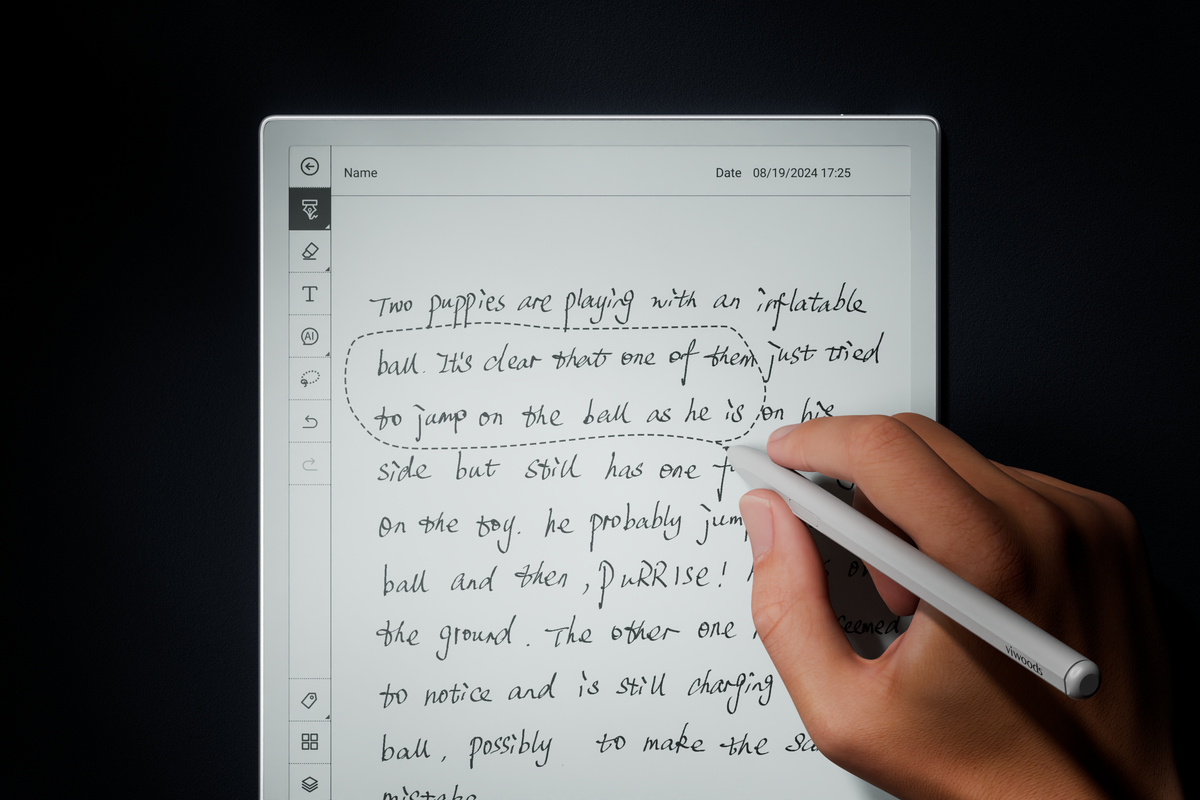 Name Date 08/19/2024 17:25
AI
T
Two puppies are playing with an inflatable
ball. It's clear that one of them just tried
to jump on the ball as he is on his
side but still has one
on the toy. he probably
ball and then, PuRRISe!
the ground. The other one seemed
to notice and is still charging
ball, possibly to make the
mistake
viwoods